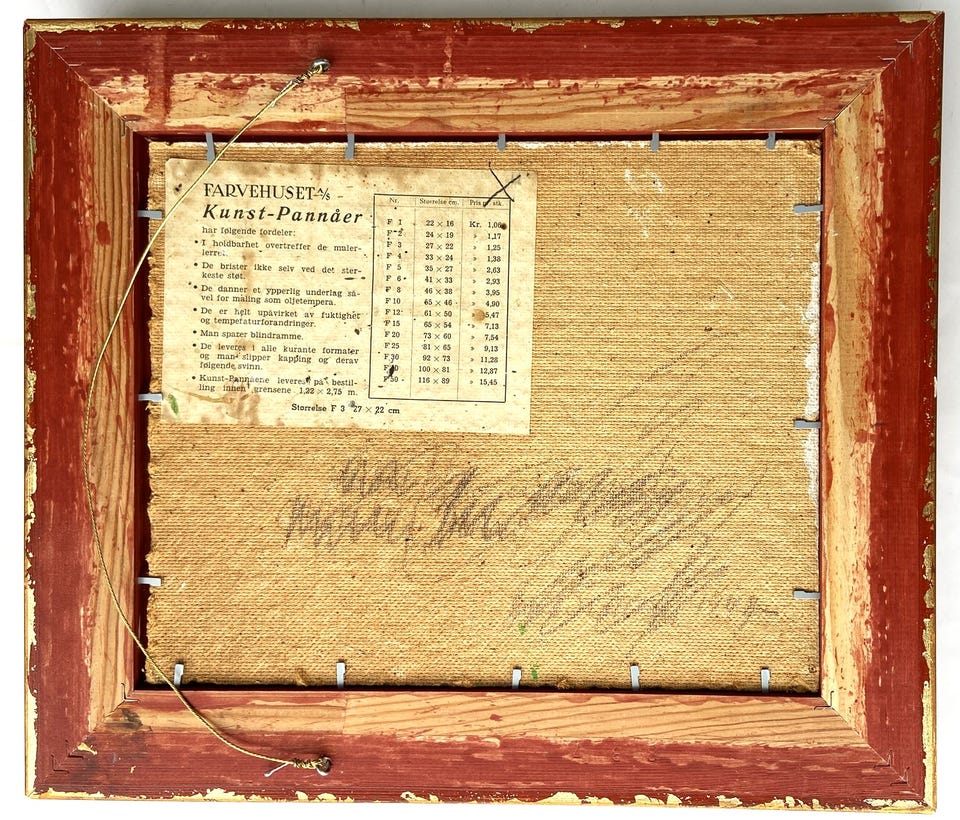 FARVEHUSET A/S
Kunst-Pannåer
har følgende fordeler:
• I holdbarhet overtreffer de maler-
lerret.
• De brister ikke selv ved det ster-
keste støt.
• De danner et ypperlig underlag så-
vel for maling som oljetempera.
• De er helt upåvirket av fuktighet
og temperaturforandringer.
• Man sparer blindramme.
• De leveres i alle kurante formater
og man slipper kapping og derav
følgende svinn.
• Kunst-Pannåene leveres på bestil-
ling innen grensene 1,22 × 2,75 m.
Nr. Størrelse cm. Pris pr. stk.
F 1 22 × 16 Kr. 1,06
F 2 24 × 19 » 1,17
F 3 27 × 22 » 1,25
F 4 33 × 24 » 1,38
F 5 35 × 27 » 2,63
F 6 41 × 33 » 2,93
F 8 46 × 38 » 3,95
F 10 55 × 46 » 4,90
F 12 61 × 50 » 5,47
F 15 65 × 54 » 7,13
F 20 73 × 60 » 7,54
F 25 81 × 65 » 9,13
F 30 92 × 73 » 11,28
F 40 100 × 81 » 12,87
F 50 116 × 89 » 15,45
Størrelse F 3 27 × 22 cm